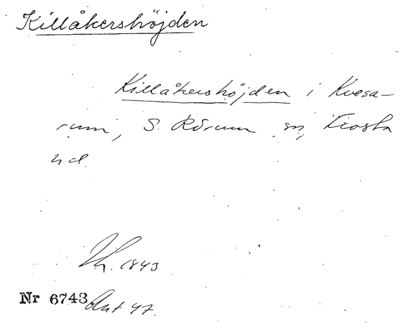 Killåkershöjden
Killåkershöjden i Kvesa-
rum, S. Rörum sn, Frosta
hd.
1843
Nr 6743 Ant 47.